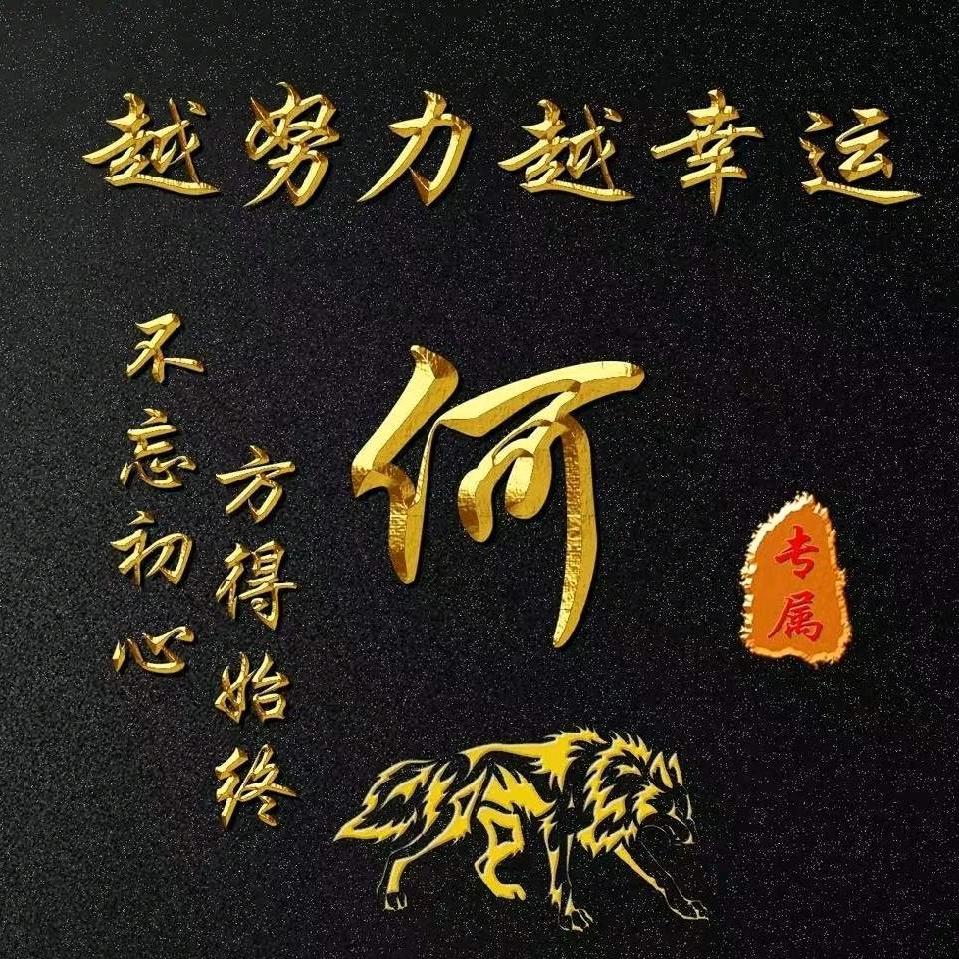 越努力越幸运
不忘初心
方得始终
何
专属